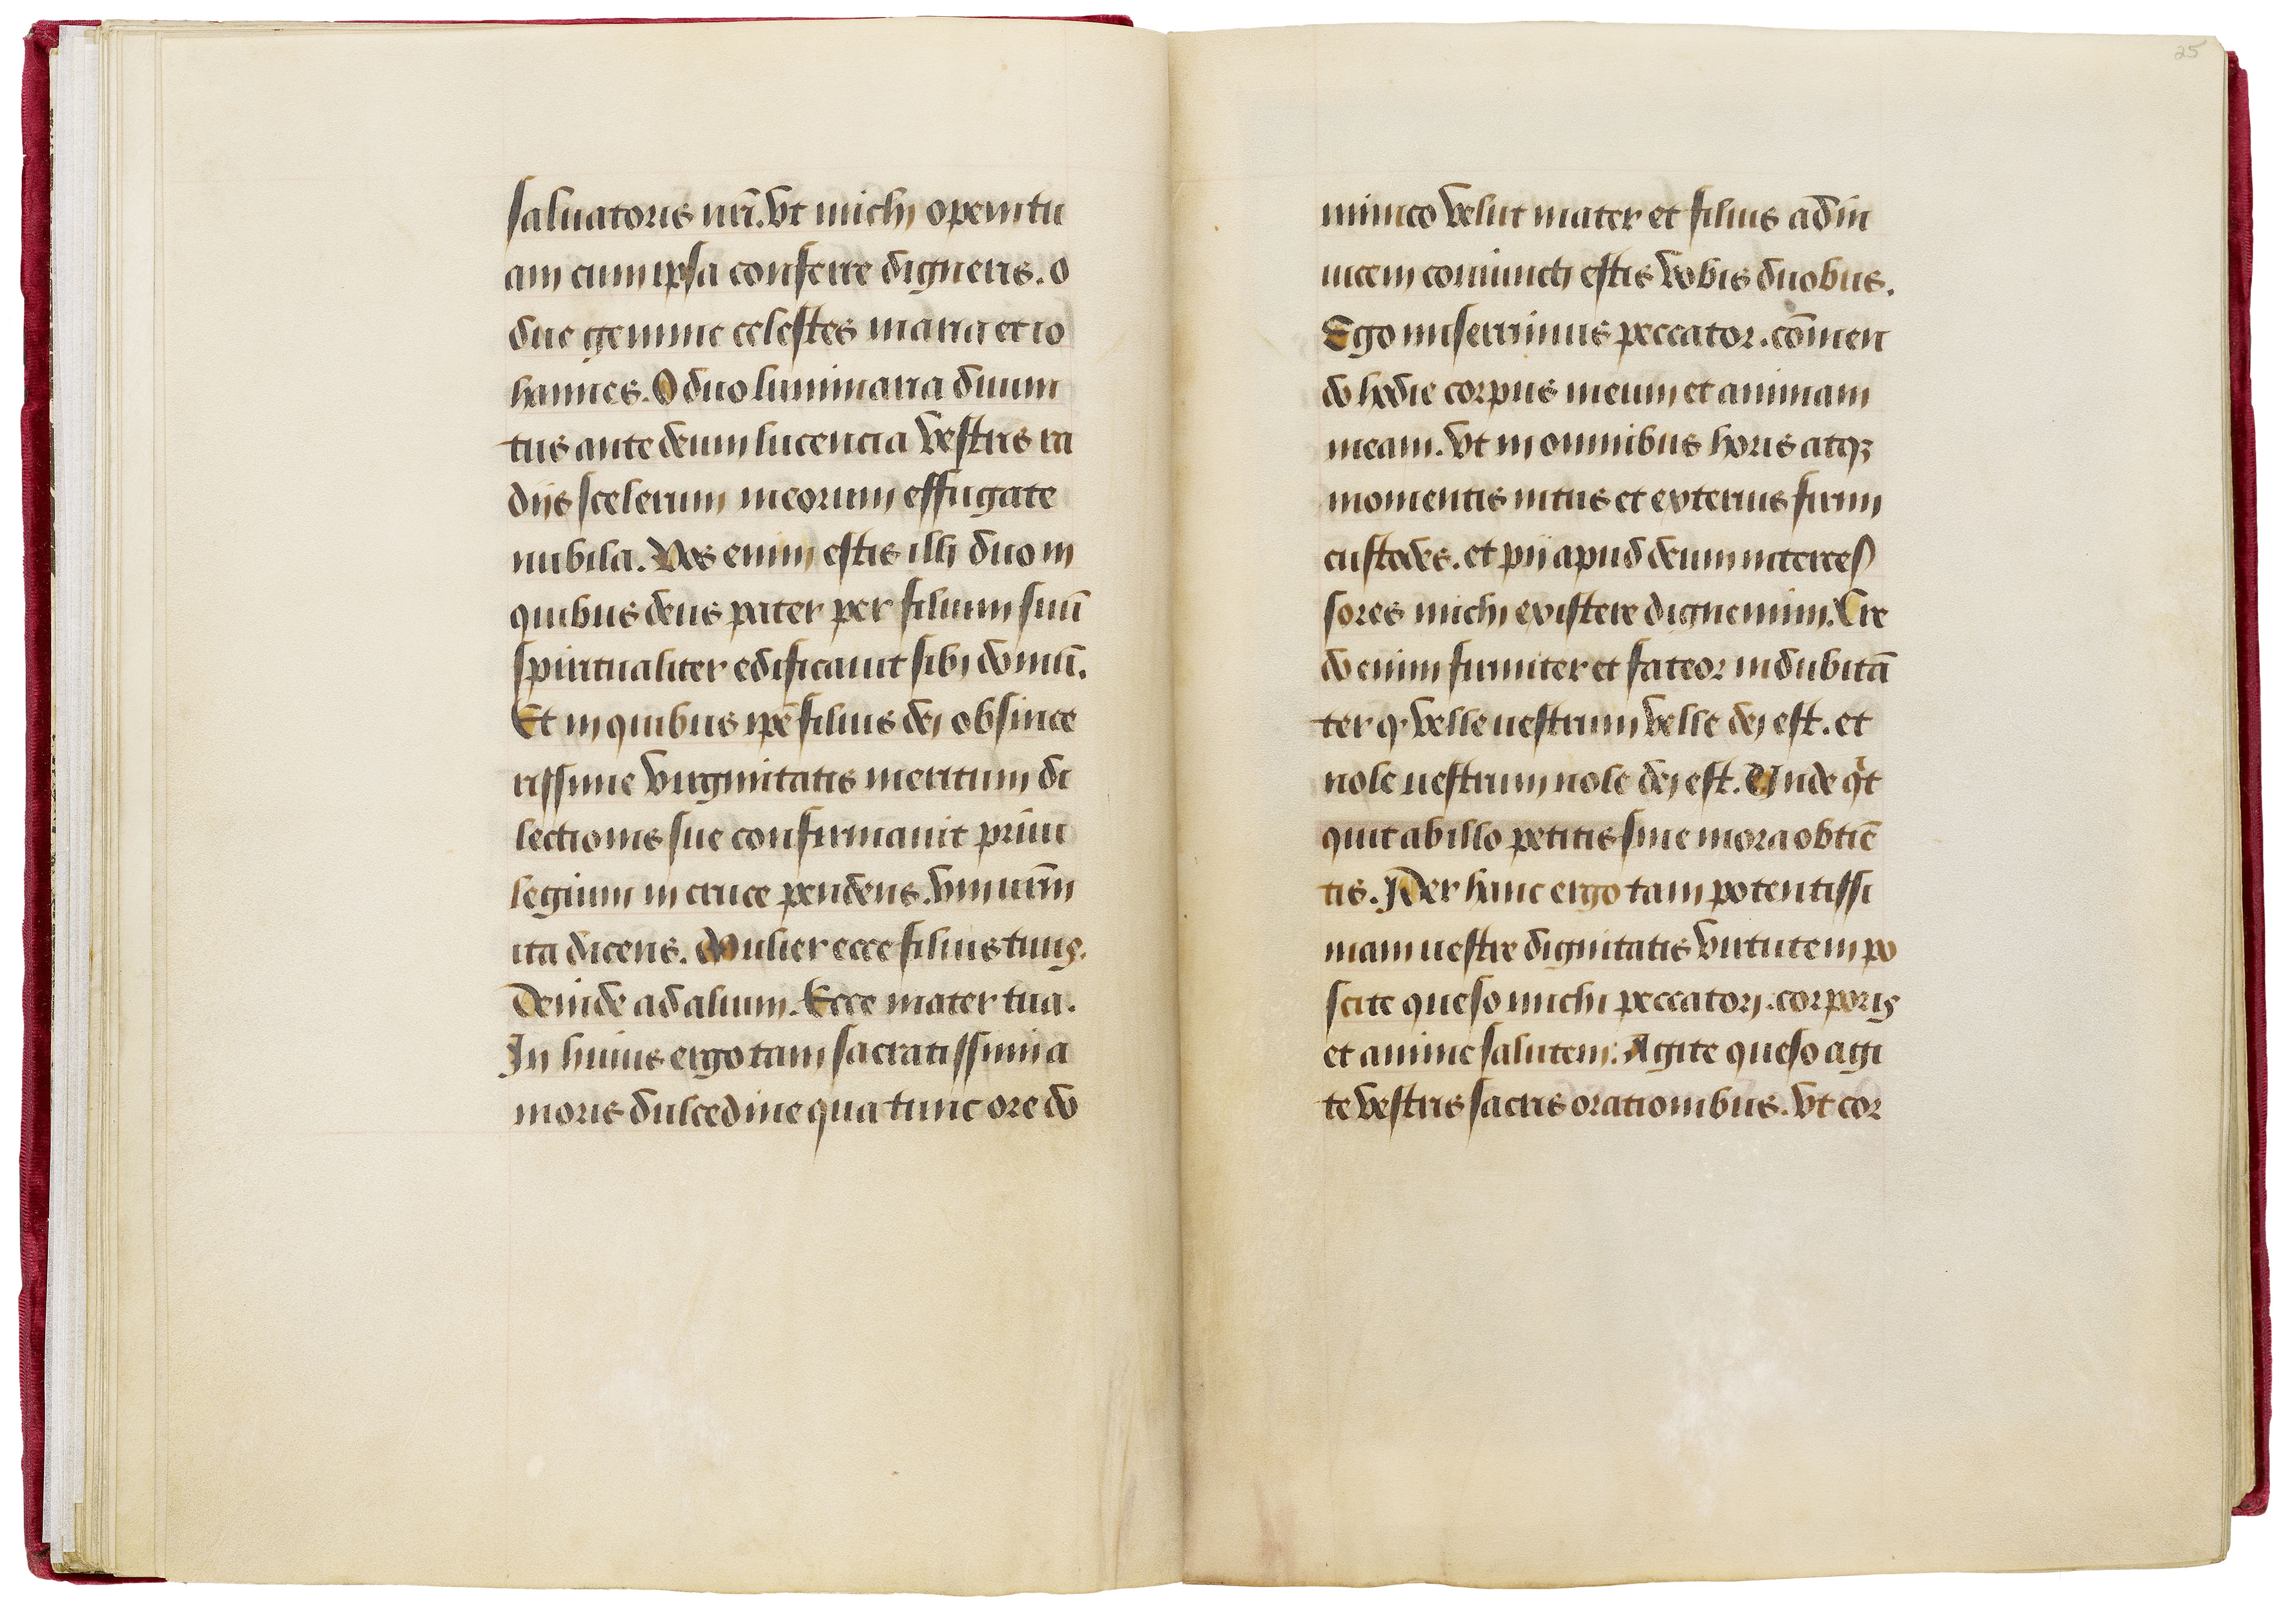 saluatoris nrī. vt michi opem tu
am cum ipsa conferre digneris. O
due gemme celestes maria et io
hannes. O duo luminaria diuini
tus ante deum lucencia vestris ra
diis scelerum meorum effugate
nubila. Vos enim estis illi duo in
quibus deus pater per filium suū
spiritualiter edificauit sibi domū.
Et in quibus ipē filius dei ob since
rissime virginitatis meritum di
lectionis sue confirmauit priui
legium in cruce pendens. vni urm̄
ita dicens. Mulier ecce filius tuus.
Deinde ad alium. Ecce mater tua.
In huius ergo tam sacratissimi a
moris dulcedine qua tunc ore do
25
minico velut mater et filius ad in
uicem coniuncti estis vobis duobus.
Ego miserrimus peccator. cōmen
do hodie corpus meum et animam
meam. vt in omnibus horis atqꝫ
momentis intus et exterius firmi
custodes. et pii apud deum interces
sores michi existere dignemini. Cre
do enim firmiter et fateor indubitā
ter ꝙ velle uestrum velle dei est. et
nole uestrum nole dei est. Unde qͥc
quit ab illo petitis sine mora obtinē
tis. Per hanc ergo tam potentissi
mam uestre dignitatis virtutem po
scite queso michi peccatori. corporis
et anime salutem. Agite queso agi
te vestris sacris orationibus. vt cor